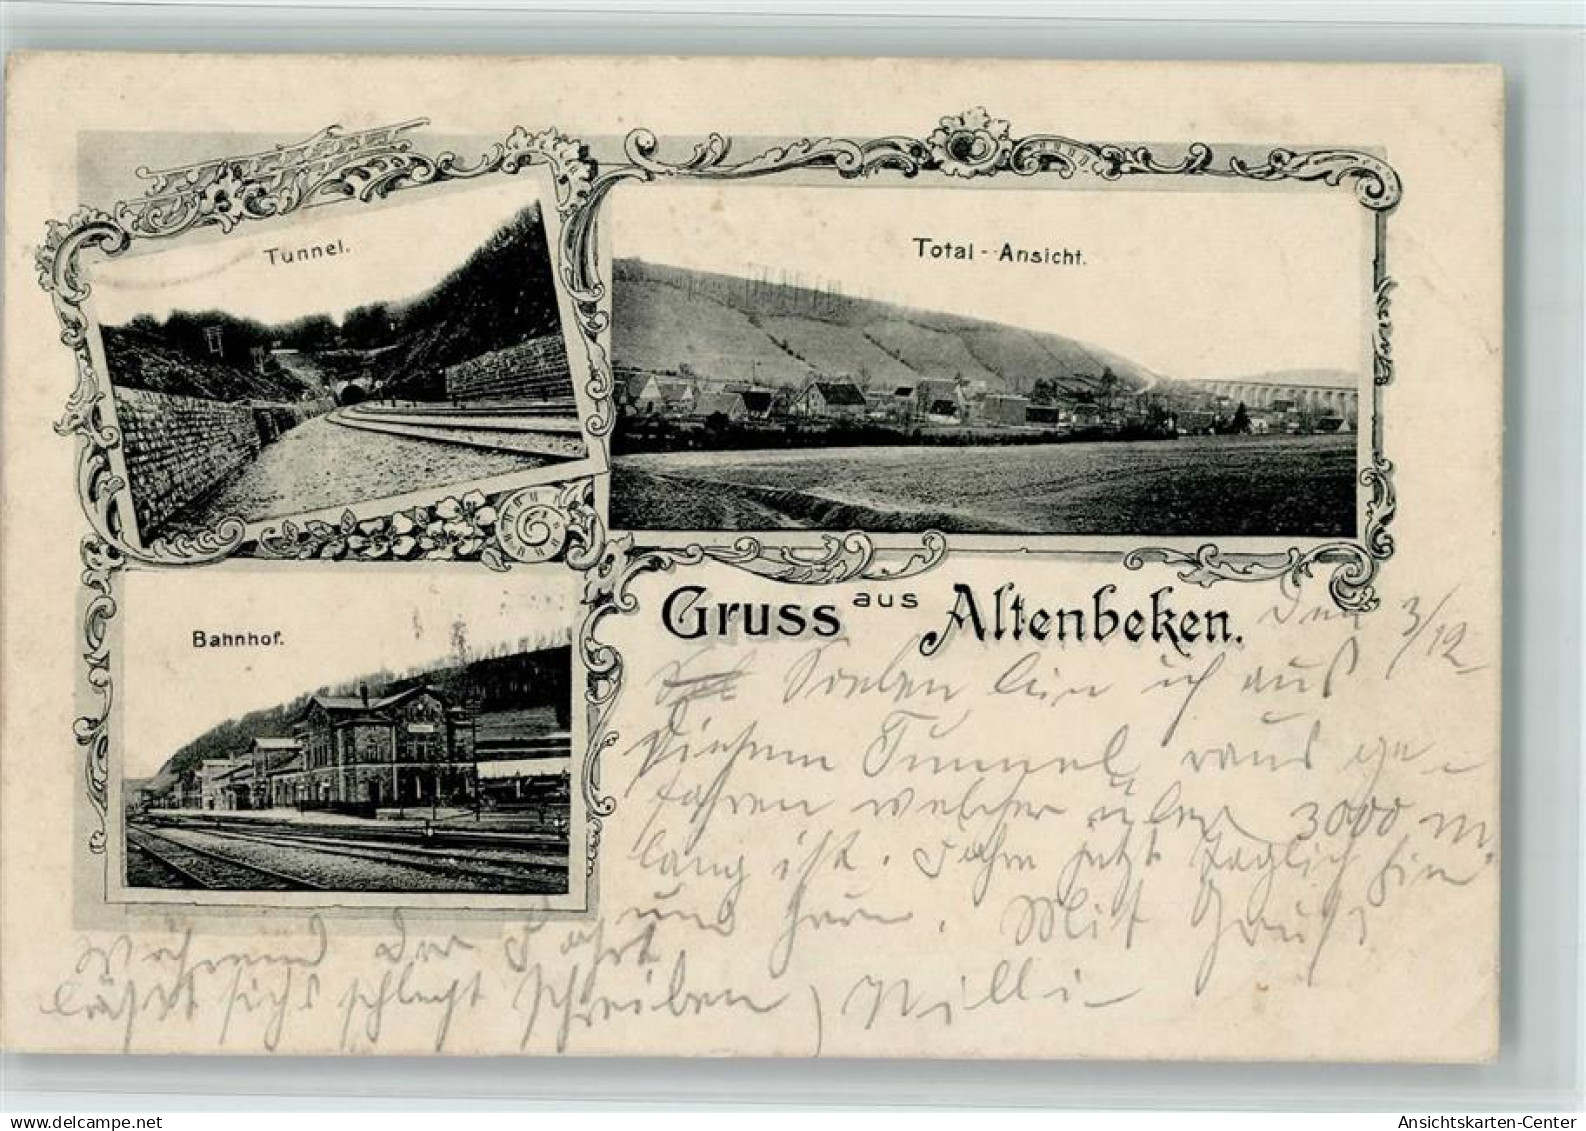 Tunnel.
Total - Ansicht.
Bahnhof.
Gruss aus Altenbeken.
Den 3/12
Soeben bin ich aus
diesem Tunnel raus ge-
fahren welcher über 3000 m
lang ist. Fahre jetzt täglich hin
und her. Mit Gruß
Während der Fahrt
läßt sichs schlecht schreiben
Willi
delcampe.net
Ansichtskarten-Center